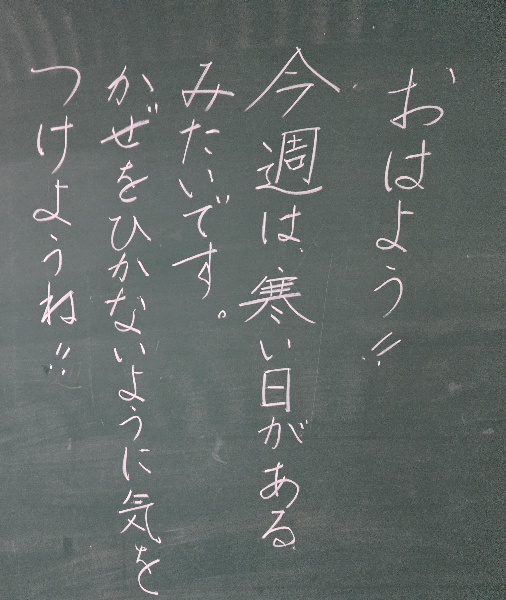 おはよう!!
今週は寒い日がある
みたいです。
かぜをひかないように気を
つけようね!!